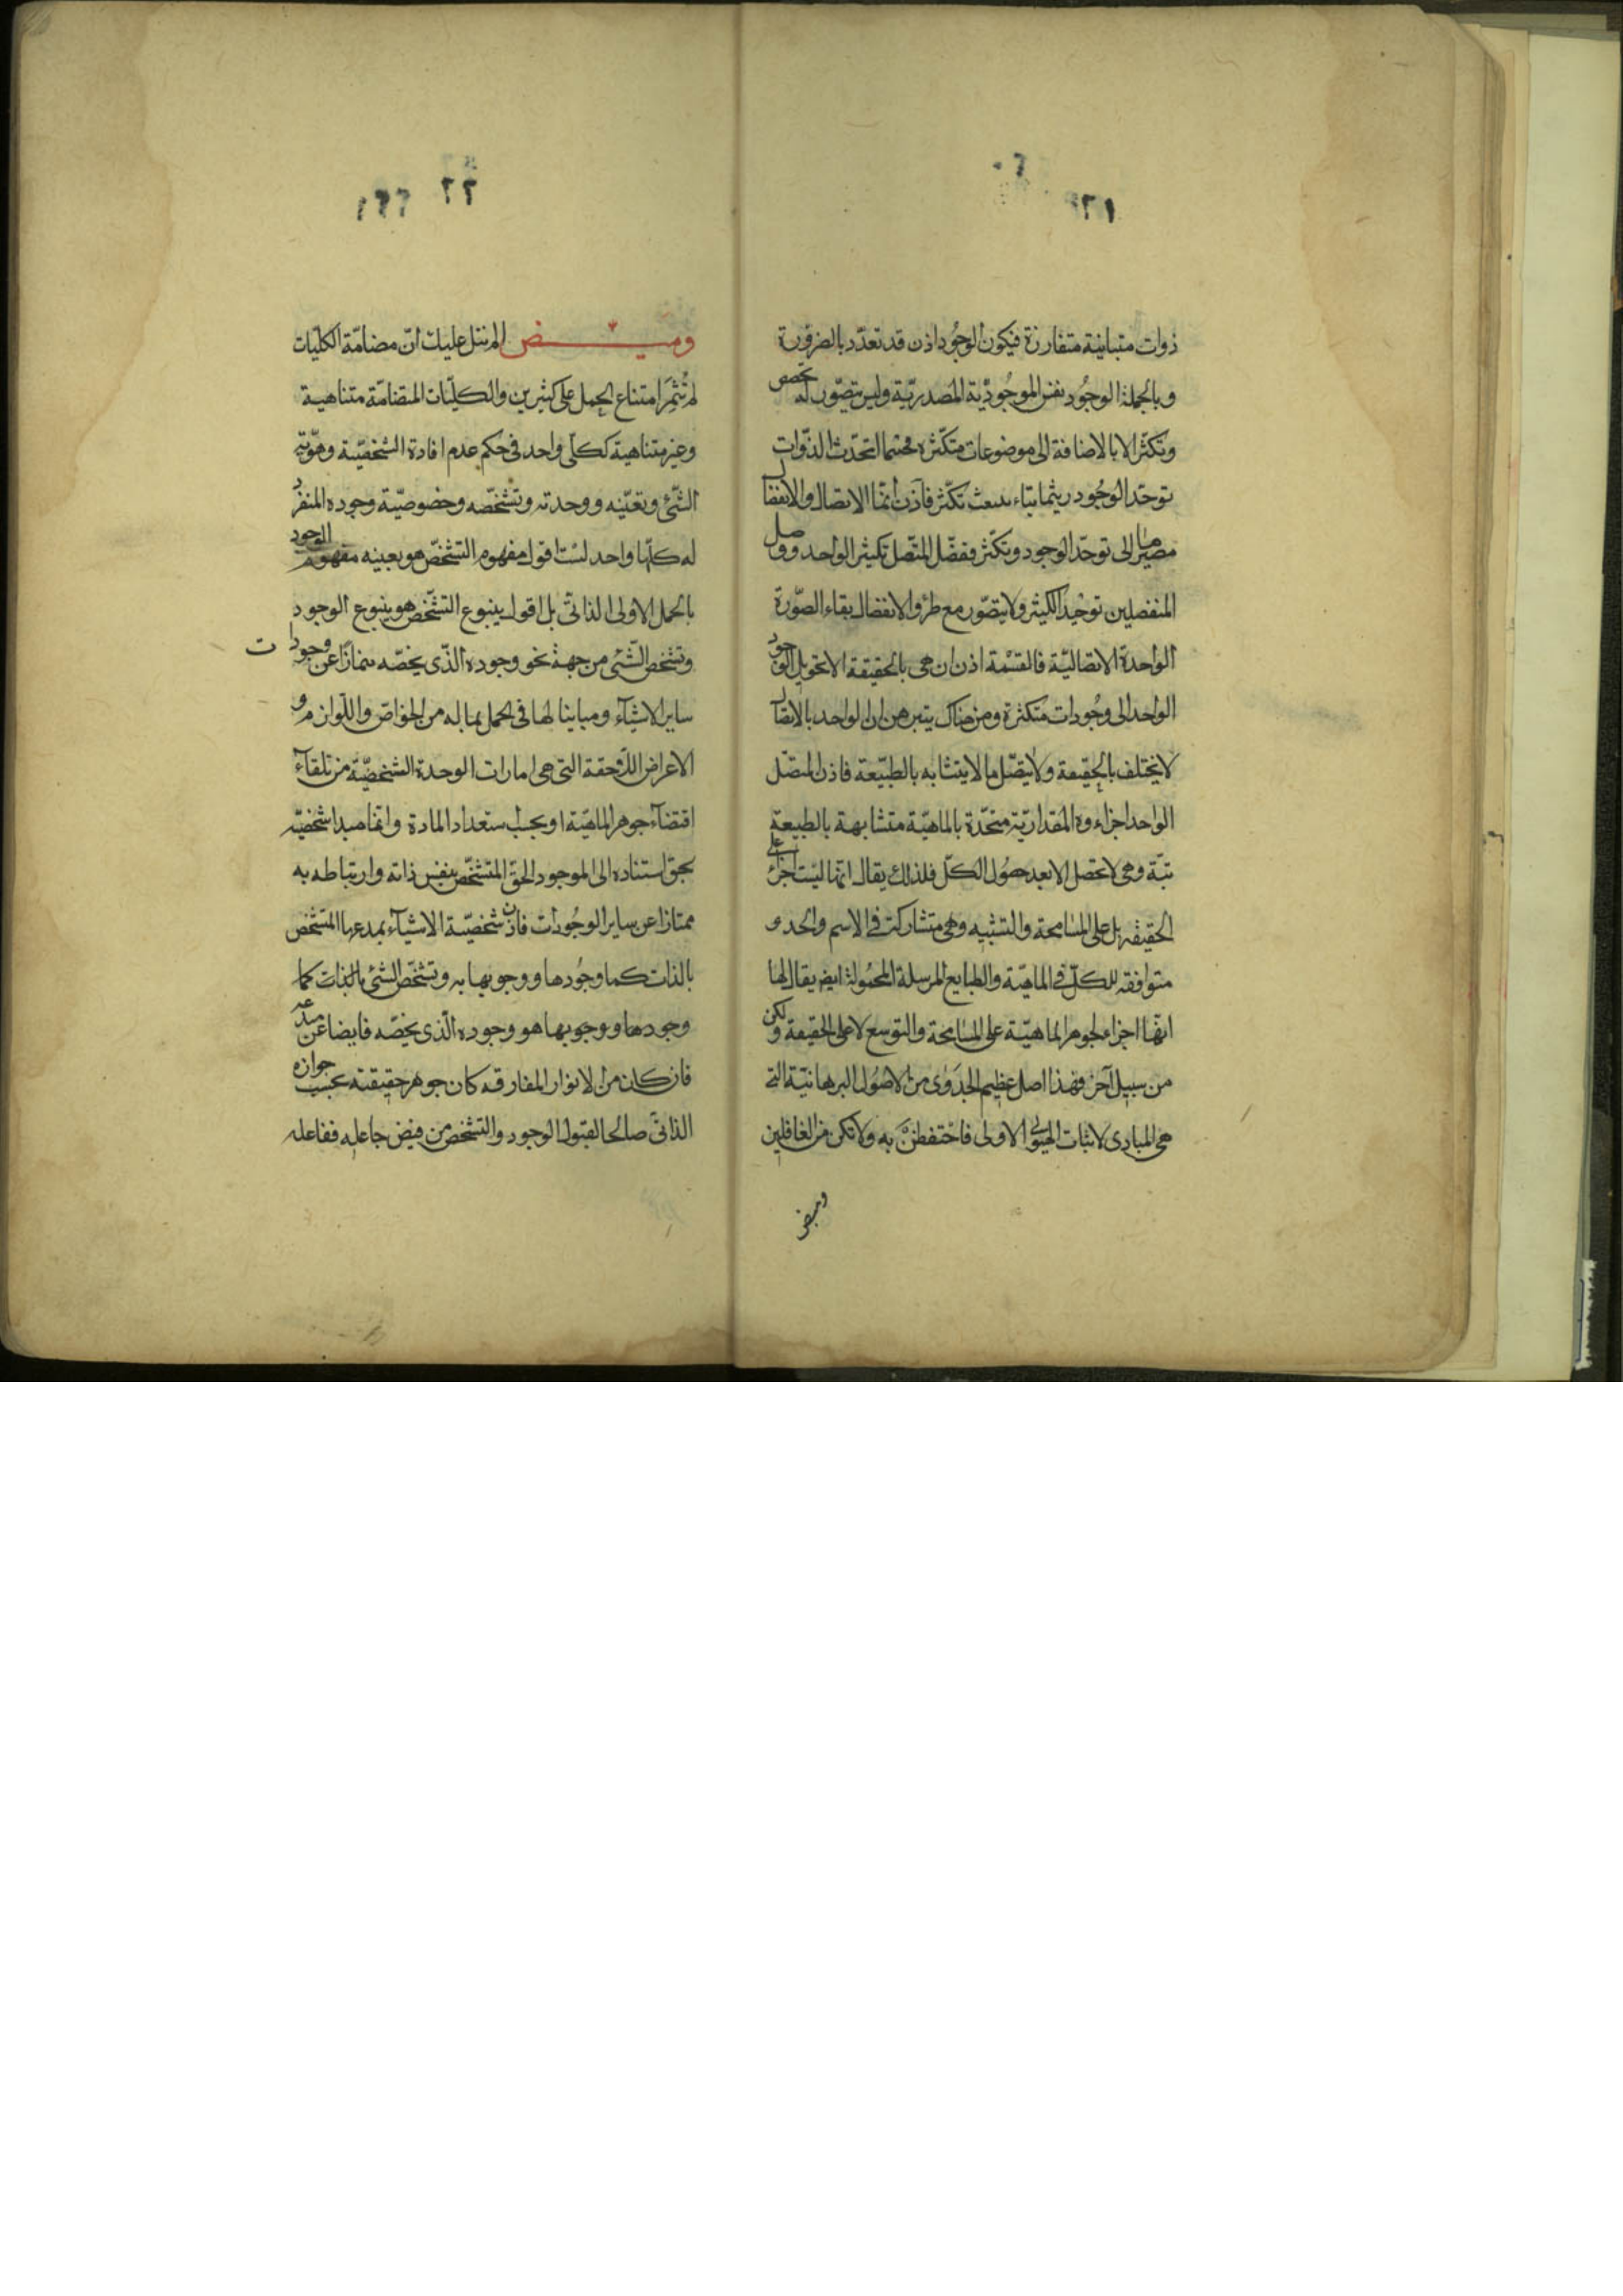 ١٢١
ذوات متباينة متفارزة فيكون الوجود اذن قد تعدّد بالضرورة
وبالجملة الوجود نفس الموجوديّة المصدريّة وليس يتصوّر له تخصص
وتكثّر الا بالاضافة الى موضوعات متكثّرة فحيثما اتحدت الذوات
توحّد الوجود ريثما تكثّر فاذن انّما الاتصال والانفصال
مصيرهما الى توحّد الوجود وتكثّر ففصل المتّصل تكثير الواحد ووصل
المنفصلين توحيد الكثير ولا يتصوّر مع طرو الانفصال بقاء الصّورة
الواحدة الاتصاليّة فالقسمة اذن ان هى بالحقيقة الا تحويل الوجود
الواحد الى وجودات متكثرة ومن هناك يتبرهن ان الواحد بالاتصال
لا يختلف بالحقيقة ولا يتصّل ما لا يتشابه بالطبيعة فاذن المتصّل
الواحد اجزاءوه المقداريّة متحّدة بالماهيّة متشابهة بالطبيعة
بتّة وهى لا تحصل الا بعد حصول الكلّ فلذلك يقال انّها ليست اجزاء على
الحقيقه بل على المسامحة والتشبيه وهى متشاركة فى الاسم والحد و
متوافقه للكلّ فى الماهيّة والطبايع المرسلة المحمولة ايض يقال لها
انّها اجزاء لجوهر الماهيّة على المسامحة والتوسع لا على الحقيقة ولكن
من سبيل آخر فهذا اصل عظيم الجدوى من الاصول البرهانيّة التى
هى المبادى لاثبات الهيولى الاولى فاحتفظنّ به ولا تكن من الغافلين
وميض
١٢٢
وميض الم نتل عليك انّ مضامّة الكليّات
لم تُثمِر امتناع الحمل على كثيرين والكليّات المتضامّة متناهية
وغير متناهية ككلّى واحد فى حكم عدم افادة الشخصيّة وهوّية
الشّئ وتعيّنه ووحدته وتشخّصه وخصوصيّة وجوده المنفرد
له كلّها واحد لست اقول مفهوم التشخّص هو بعينه مفهوم الوجود
بالحمل الاولى الذاتى بل اقول ينبوع التشخّص هو ينبوع الوجود
وتشخص الشّئ من جهة نحو وجوده الذّى يخصّه منمازا عن وجودات
ساير الاشيآء ومباينا لها فى الحمل بما له من الخواصّ واللّوازم و
الاعراض اللّاحقة التى هى امارات الوحدة الشخصيّة من تلقآء
اقتضآء جوهر الماهيّة او بحسب استعداد المادة وانما مبدا شخصيّته
بحقّ استناده الى الموجود الحقّ المتشخّص بنفس ذاته وارتباطه به
ممتازا عن ساير الوجودات فاذن شخصيّة الاشيآء بمبدعها المتشخص
بالذات كما وجودها ووجوبها به وتشخّص الشئ بالذات كما
وجودها ووجوبها هو وجوده الّذى يخصّه فايضا عن مبدعه
فان كان من الانوار المفارقه كان جوهر حقيقته بحسب جوازه
الذاتى صالحا لقبول الوجود والتشخص من فيض جاعله ففاعله